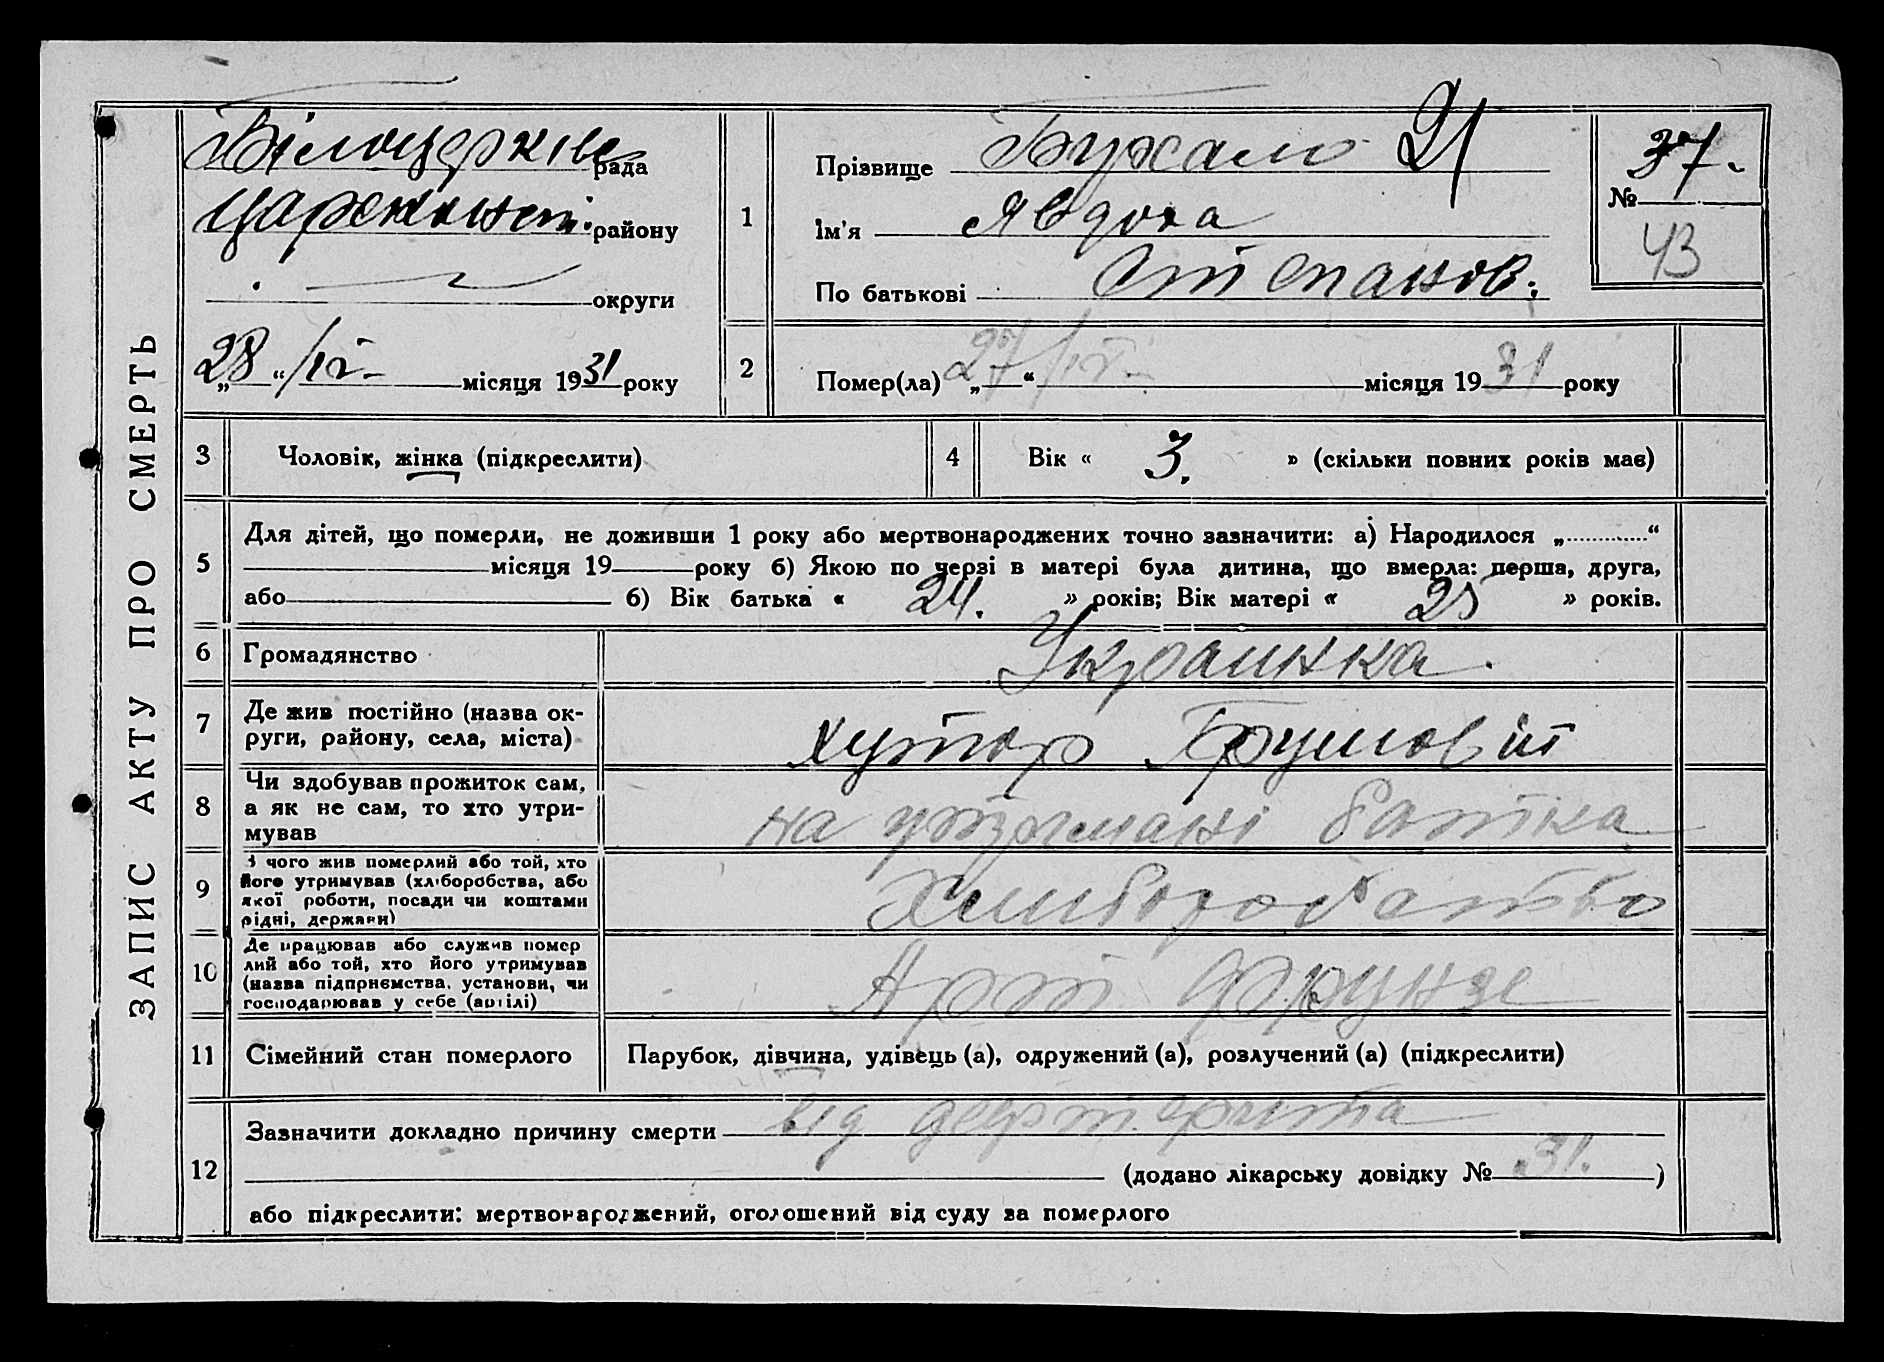 ЗАПИС АКТУ ПРО СМЕРТЬ
Білоцерків рада
району
округи
„28“ /IV- місяця 1931 року
1
Прізвище Бухало 21
Ім'я Явдоха
По батькові Степанов.
37.
№
43
2
Помер(ла) „27“ /IV- місяця 1931 року
3 Чоловік, жінка (підкреслити)
4 Вік « 3. » (скільки повних років має)
5 Для дітей, що померли, не доживши 1 року або мертвонароджених точно зазначити: а) Народилося „............“
місяця 19 року б) Якою по черзі в матері була дитина, що вмерла: перша, друга,
або б) Вік батька « 24. » років; Вік матері « 25 » років.
6 Громадянство Украинка.
7 Де жив постійно (назва ок-
руги, району, села, міста) хутор
8 Чи здобував прожиток сам,
а як не сам, то хто утри-
мував на утрімані батка
9 З чого жив померлий або той, хто
його утримував (хліборобства, або
якої роботи, посади чи коштами
рідні, держави) Хлиборобство
10 Де працював або служив помер
лий або той, хто його утримував
(назва підприємства, установи, чи
господарював у себе (артілі) Арт Фрунзе
11 Сімейний стан померлого Парубок, дівчина, удівець (а), одружений (а), розлучений (а) (підкреслити)
12 Зазначити докладно причину смерти від дефтерита
(додано лікарську довідку № 31. )
або підкреслити: мертвонароджений, оголошений від суду за померлого